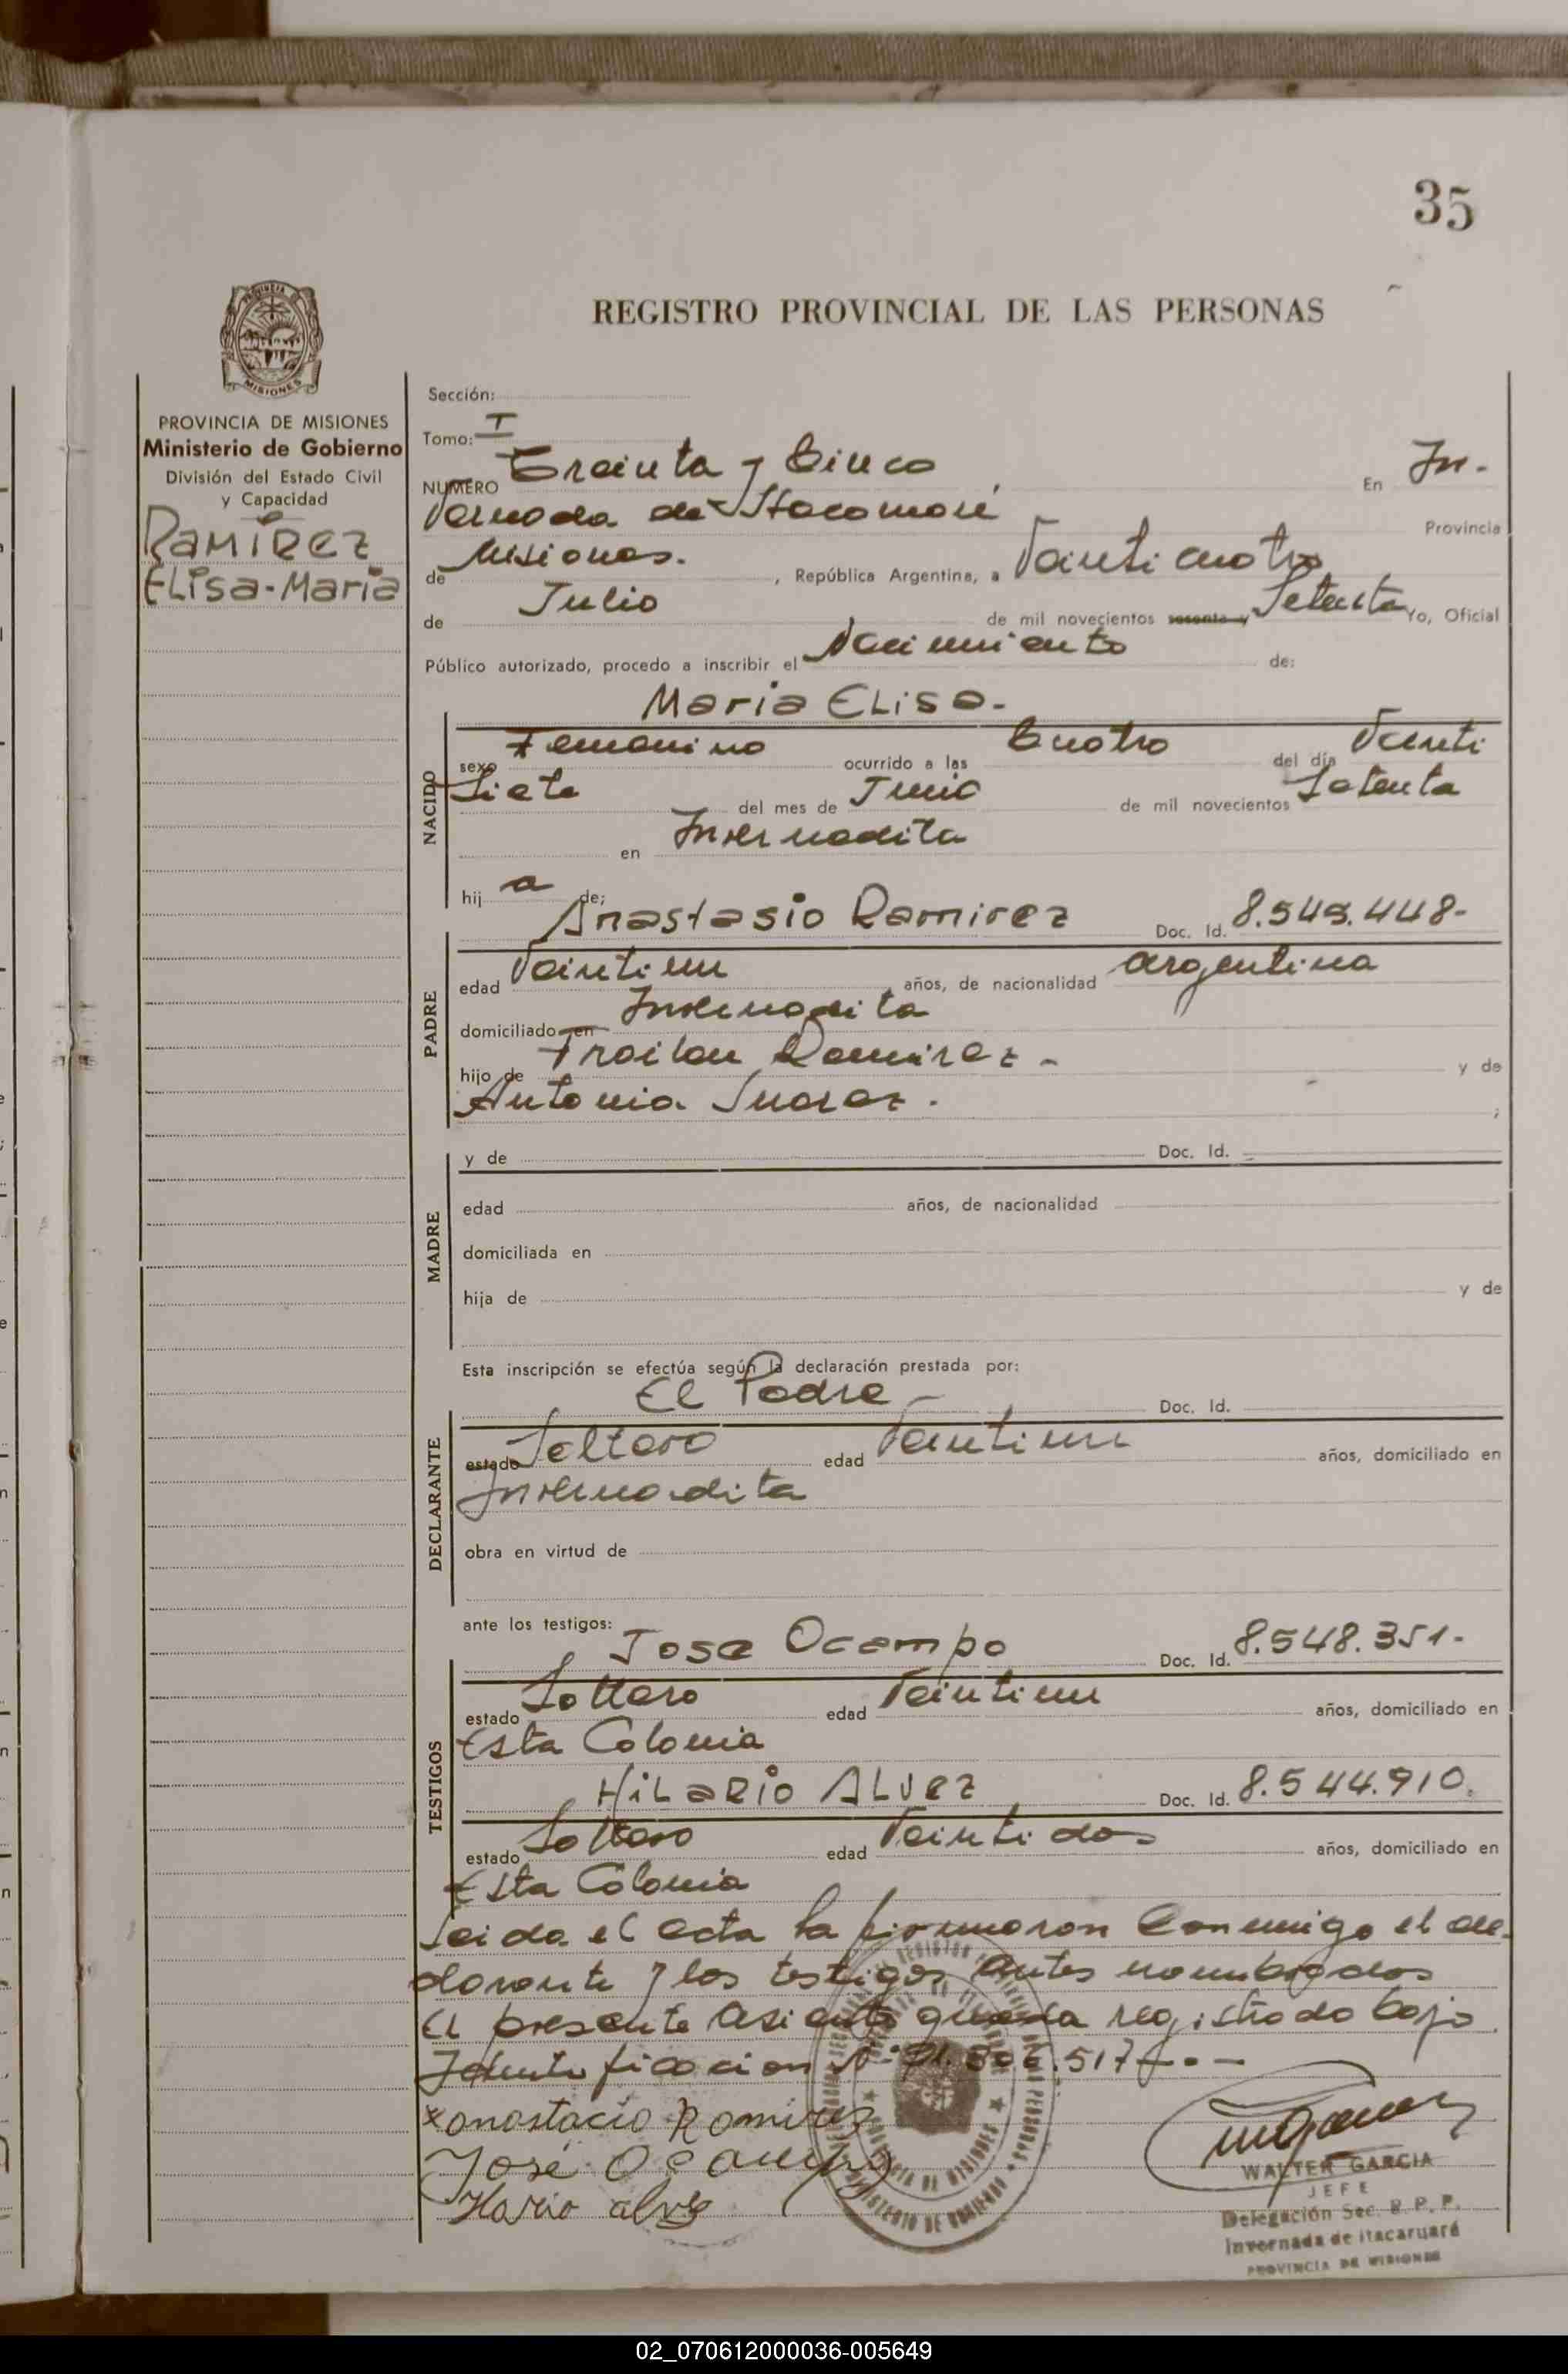 35
REGISTRO PROVINCIAL DE LAS PERSONAS
PROVINCIA
MISIONES
PROVINCIA DE MISIONES
Ministerio de Gobierno
División del Estado Civil
y Capacidad
RAMÍREZ
ELisa-Maria
Sección:
Tomo: I
NUMERO Treinta y Cinco En In-
vernada de Itacaruaré Provincia
de Misiones. , República Argentina, a Veinticuatro
de Julio de mil novecientos sesenta y Setenta Yo, Oficial
Público autorizado, procedo a inscribir el Nacimiento de:
Maria ELisa.-
NACIDO
sexo Femenino ocurrido a las Cuatro del día Veinti
Siete del mes de Junio de mil novecientos Setenta
en Invernadita
hij a de;
Anastasio Ramirez Doc. Id. 8.545.448-
PADRE
edad Veintiun años, de nacionalidad argentina
domiciliado en Invernadita
hijo de Froilan Ramirez - y de
Antonia Suarez. ;
MADRE
y de Doc. Id.
edad años, de nacionalidad
domiciliada en
hija de y de
Esta inscripción se efectúa según la declaración prestada por:
El Padre - Doc. Id.
DECLARANTE
estado Soltero edad Veintiun años, domiciliado en
Invernadita
obra en virtud de
ante los testigos:
Jose Ocampo Doc. Id. 8.548.351-
TESTIGOS
estado Soltero edad Veintiun años, domiciliado en
Esta Colonia
HiLaRio ALVez Doc. Id. 8.544.910.
estado Soltero edad Veintidos años, domiciliado en
Esta Colonia
Leida el acta la firmaron Conmigo el de-
clarante y los testigos antes nombrados
El presente Asiento queda registrado bajo
Identificacion Nº 21.306.517
x anastacio Ramirez
José Ocampo
Ilario alvez
WALTER GARCIA
JEFE
Delegación Sec. R. P. P.
Invernada de Itacaruaré
PROVINCIA DE MISIONES
02_070612000036-005649